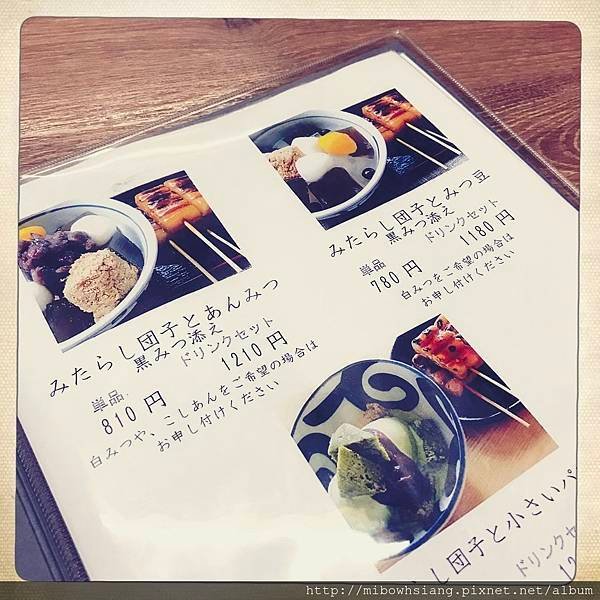 みたらし団子とあんみつ
黒みつ添え
単品 ドリンクセット
810 円 1210 円
白みつや、こしあんをご希望の場合は
お申し付けください
みたらし団子とみつ豆
黒みつ添え
単品 ドリンクセット
780 円 1180 円
白みつをご希望の場合は
お申し付けください
らし団子と小さいパ
ドリンクセ
12
http://mibowhsiang.pixnet.net/album